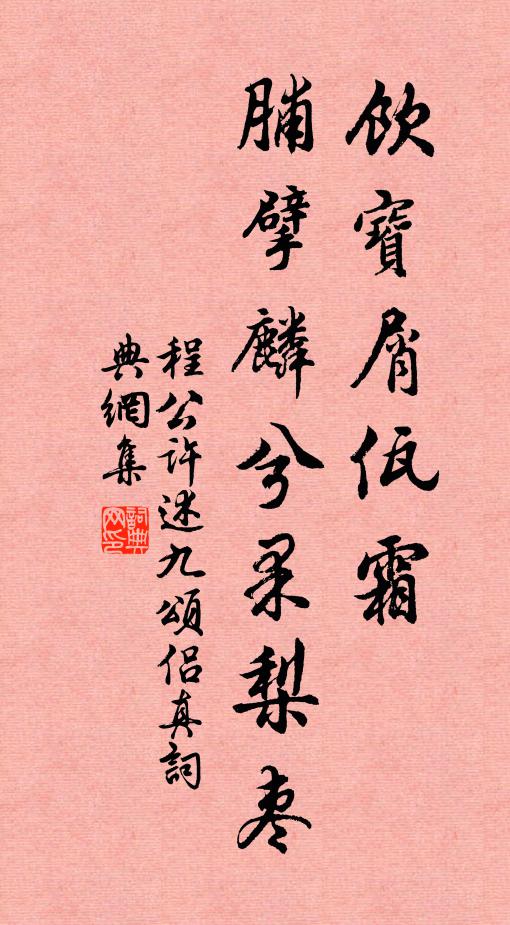 飲寶屑霜
脯擘麟兮果梨枣
程公許述九頌侶真詞
典網集
詞典網印